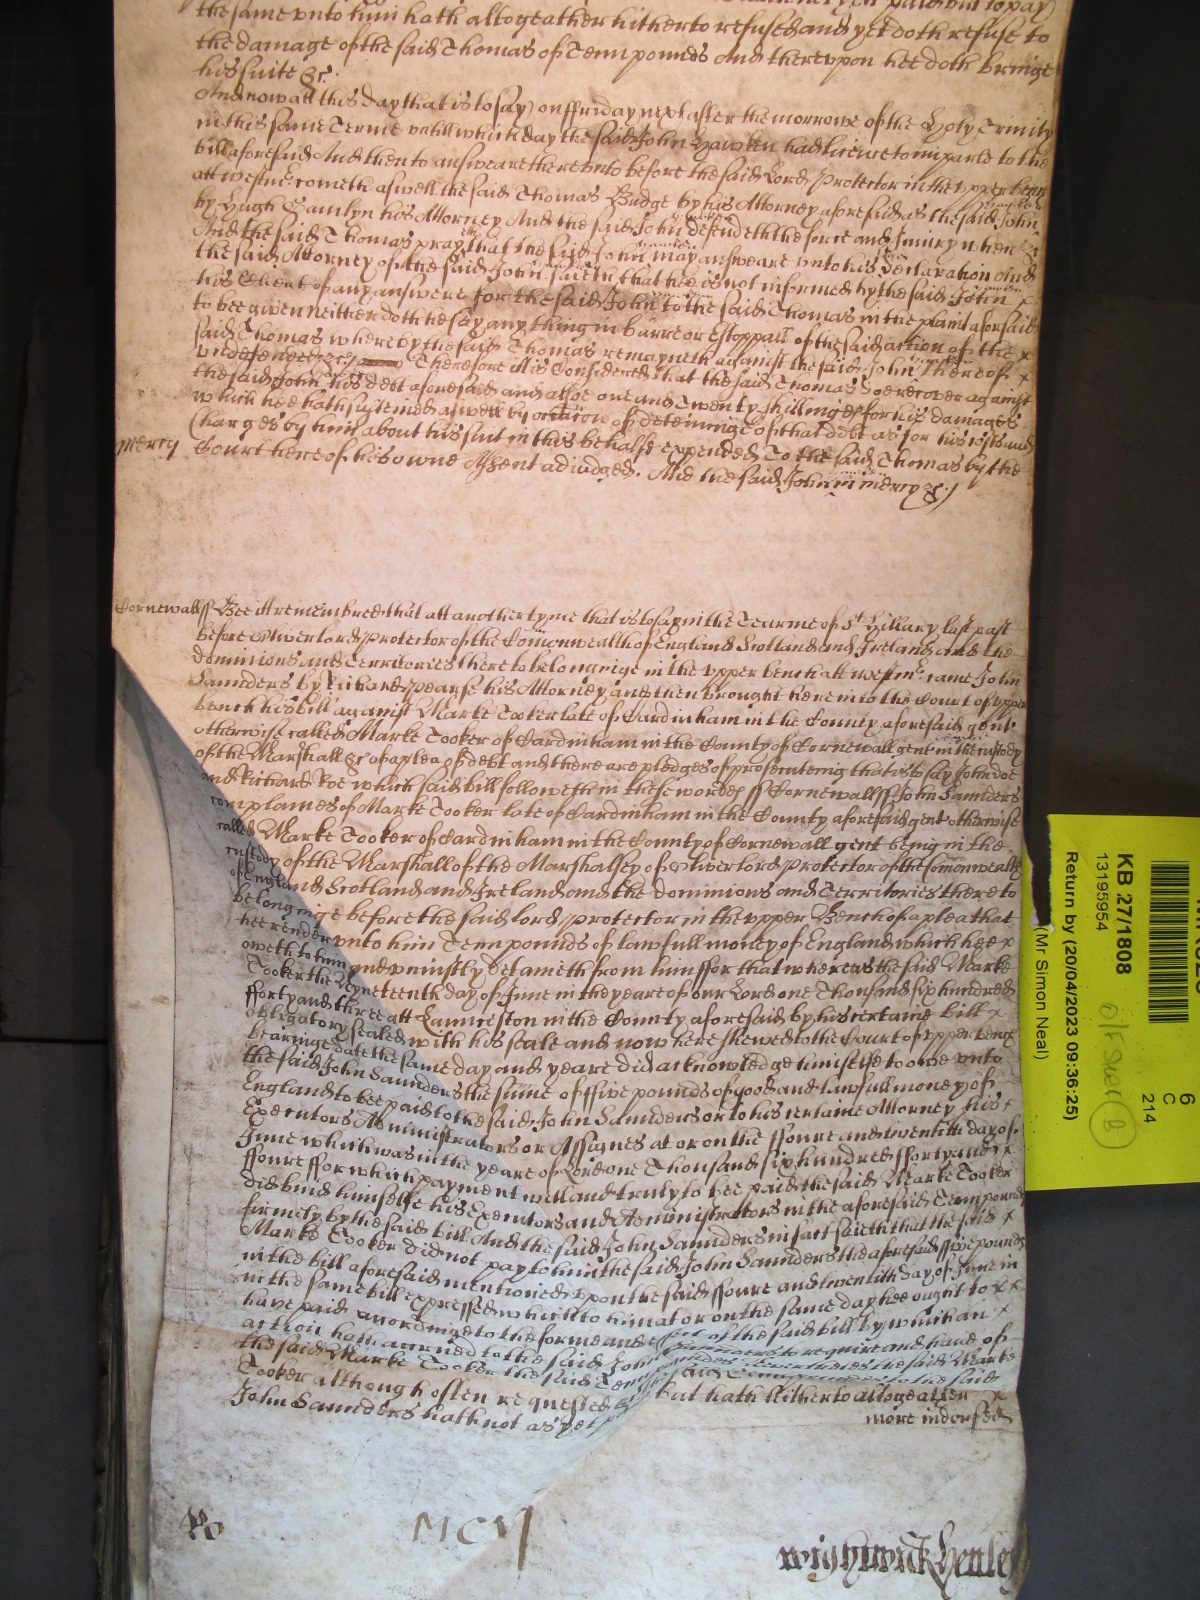 the same unto him hath altogeather hitherto refused and yet doth refuse to
the damage of the said Thomas of Tenn pounds And thereupon hee doth bringe
his suite &c.
And now att this day that is to say) on ffriday next after the morrowe of the Holy Trinity
in this same Terme untill which day the said John Hawken had licence to imparle to the
bill aforesaid And then to answeare thereunto before the said Lord Protector in the upper bench
att westmr. cometh aswell the said Thomas Budge by his Attorney aforesaid as the said John
by Hugh Hamlyn his Attorney And the said John defendeth the force and Iniury when &c
And the said Thomas prayeth that the said John may answeare unto his declaration And
the said Attorney of the said John saieth that hee is not informed by the said John x
his Client of any answere for the said John to the said Thomas in the plaint aforsaid
to bee given neither doth he say any thing in barre or Estoppall of the said action of the x
said Thomas whereby the said Thomas remayneth against the said John thereof x
undefended &c) Therefore itt is Considered that the said Thomas doe recover against
the said John his debt aforesaid and alsoe one and Twenty shillinges for his damages
which hee hath susteined aswell by occacion of deteininge of that debt as for his costs and
Charges by him about his suit in this behalfe expended To the said Thomas by the
mercy Court here of his owne Assent adiudged. And the said John in mercy &c)
Cornewall ss Bee itt remembred that att another tyme that is to say in the Tearme of St. Hillary last past
before Oliver lord protector of the Comonwealth of England Scotland and Ireland and the
dominions and Territories thereto belonginge in the upper bench att westmr. came John
Saunders by Richard Pearse his Attorney and then brought here into the Court of upper
bench his bill against Marke Tooker late of Cardinham in the County aforesaid gent
otherwise called Marke Tooker of Cardinham in the County of Cornewall gent in the custody
of the Marshall &c of a plea of debt and there are pledges of prosecuteinge that is to say John doe
and Richard Roe which said bill followeth in these wordes ss Cornewall ss John Saunders
complaines of Marke Tooker late of Cardinham in the County aforesaid gent otherwise
called Marke Tooker of Cardinham in the County of Cornewall gent being in the
custody of the Marshall of the Marshalsey of Oliver lord protector of the Comonwealth
of England Scotland and Ireland and the dominions and Territories thereto
belonginge before the said lord protector in the upper Bench of a plea that
hee render unto him Tenn pounds of lawfull money of England which hee x
oweth to him and uniustly detaineth from him ffor that whereas the said Marke
Tooker the Nyneteenth day of June in the yeare of our Lord one Thousand six hundred
fforty and three att Lanneston in the County aforesaid by his certaine bill x
obligatory sealed with his seale and now here shewed to the Court of upper bench
bearinge date the same day and yeare did acknowledge himselfe to owe unto
the said John Saunders the summe of ffive pounds of good and lawfull money of
England to bee paid to the said John Saunders or to his certaine Attorney his
Executors Administrators or Assignes at or on the ffoure and twentith day of
June which was in the yeare of Lord one Thousand six hundred fforty and x
ffoure ffor which payment well and truly to bee paid the said Marke Tooker
did bind himselfe his Executors and Administrators in the aforesaid Tenn pounds
firmely by the said bill And the said John Saunders in fact saieth that the said x
Marke Tooker did not pay to him the said John Saunders the aforesaid ffive pounds
in the bill aforesaid mentioned upon the said ffoure and twentith day of June in
in the same bill expressed which to him at or on the same day hee ought to x x
have paid accordinge to the forme and effect of the said bill by which an x
action hath accrued to the said John Saunders to require and have of
the said Marke Tooker the said Tenn pounds Neverthelesse the said Marke
Tooker although often requested said Tenn pounds to the said
John Saunders hath not as yet but hath hitherto altogeather x
more indorsed
MCVJ
Wightwick Henley
KB 27/1808
13195954
Return by (20/04/2023 09:36:25)
(Mr Simon Neal)
6
C
214